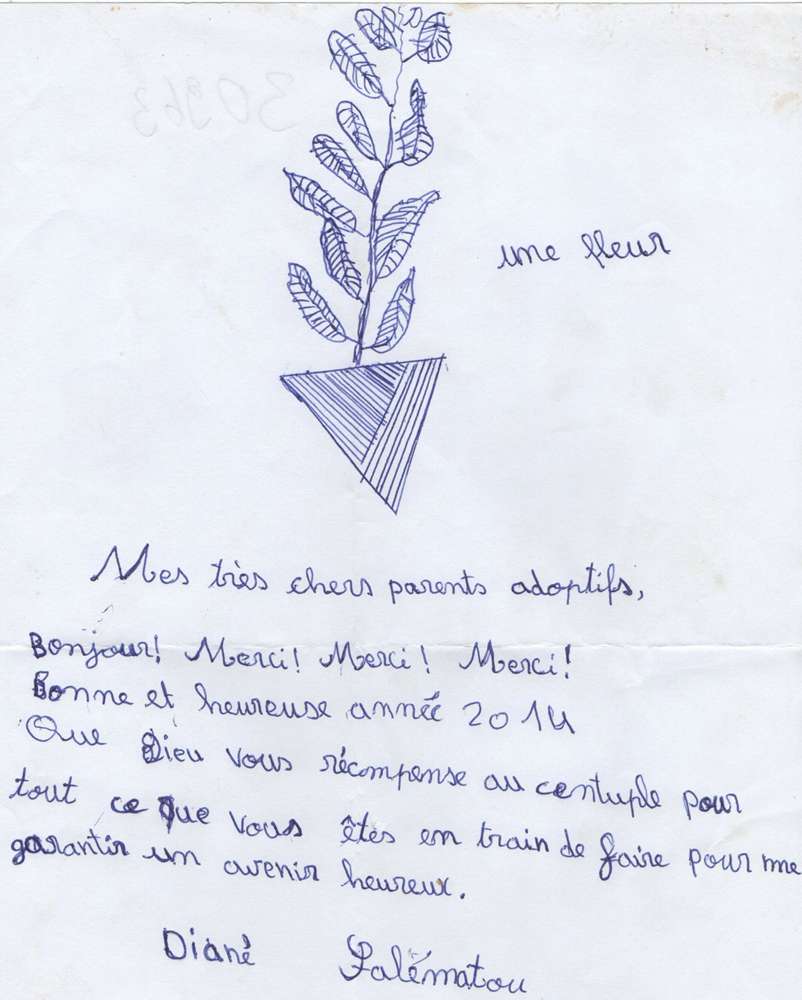 30963
une fleur
Mes très chers parents adoptifs,
Bonjour! Merci! Merci! Merci!
Bonne et heureuse année 2014
Que Dieu vous récompense au centuple pour
tout ce que vous êtes en train de faire pour me
garantir un avenir heureux.
Diané Salématou